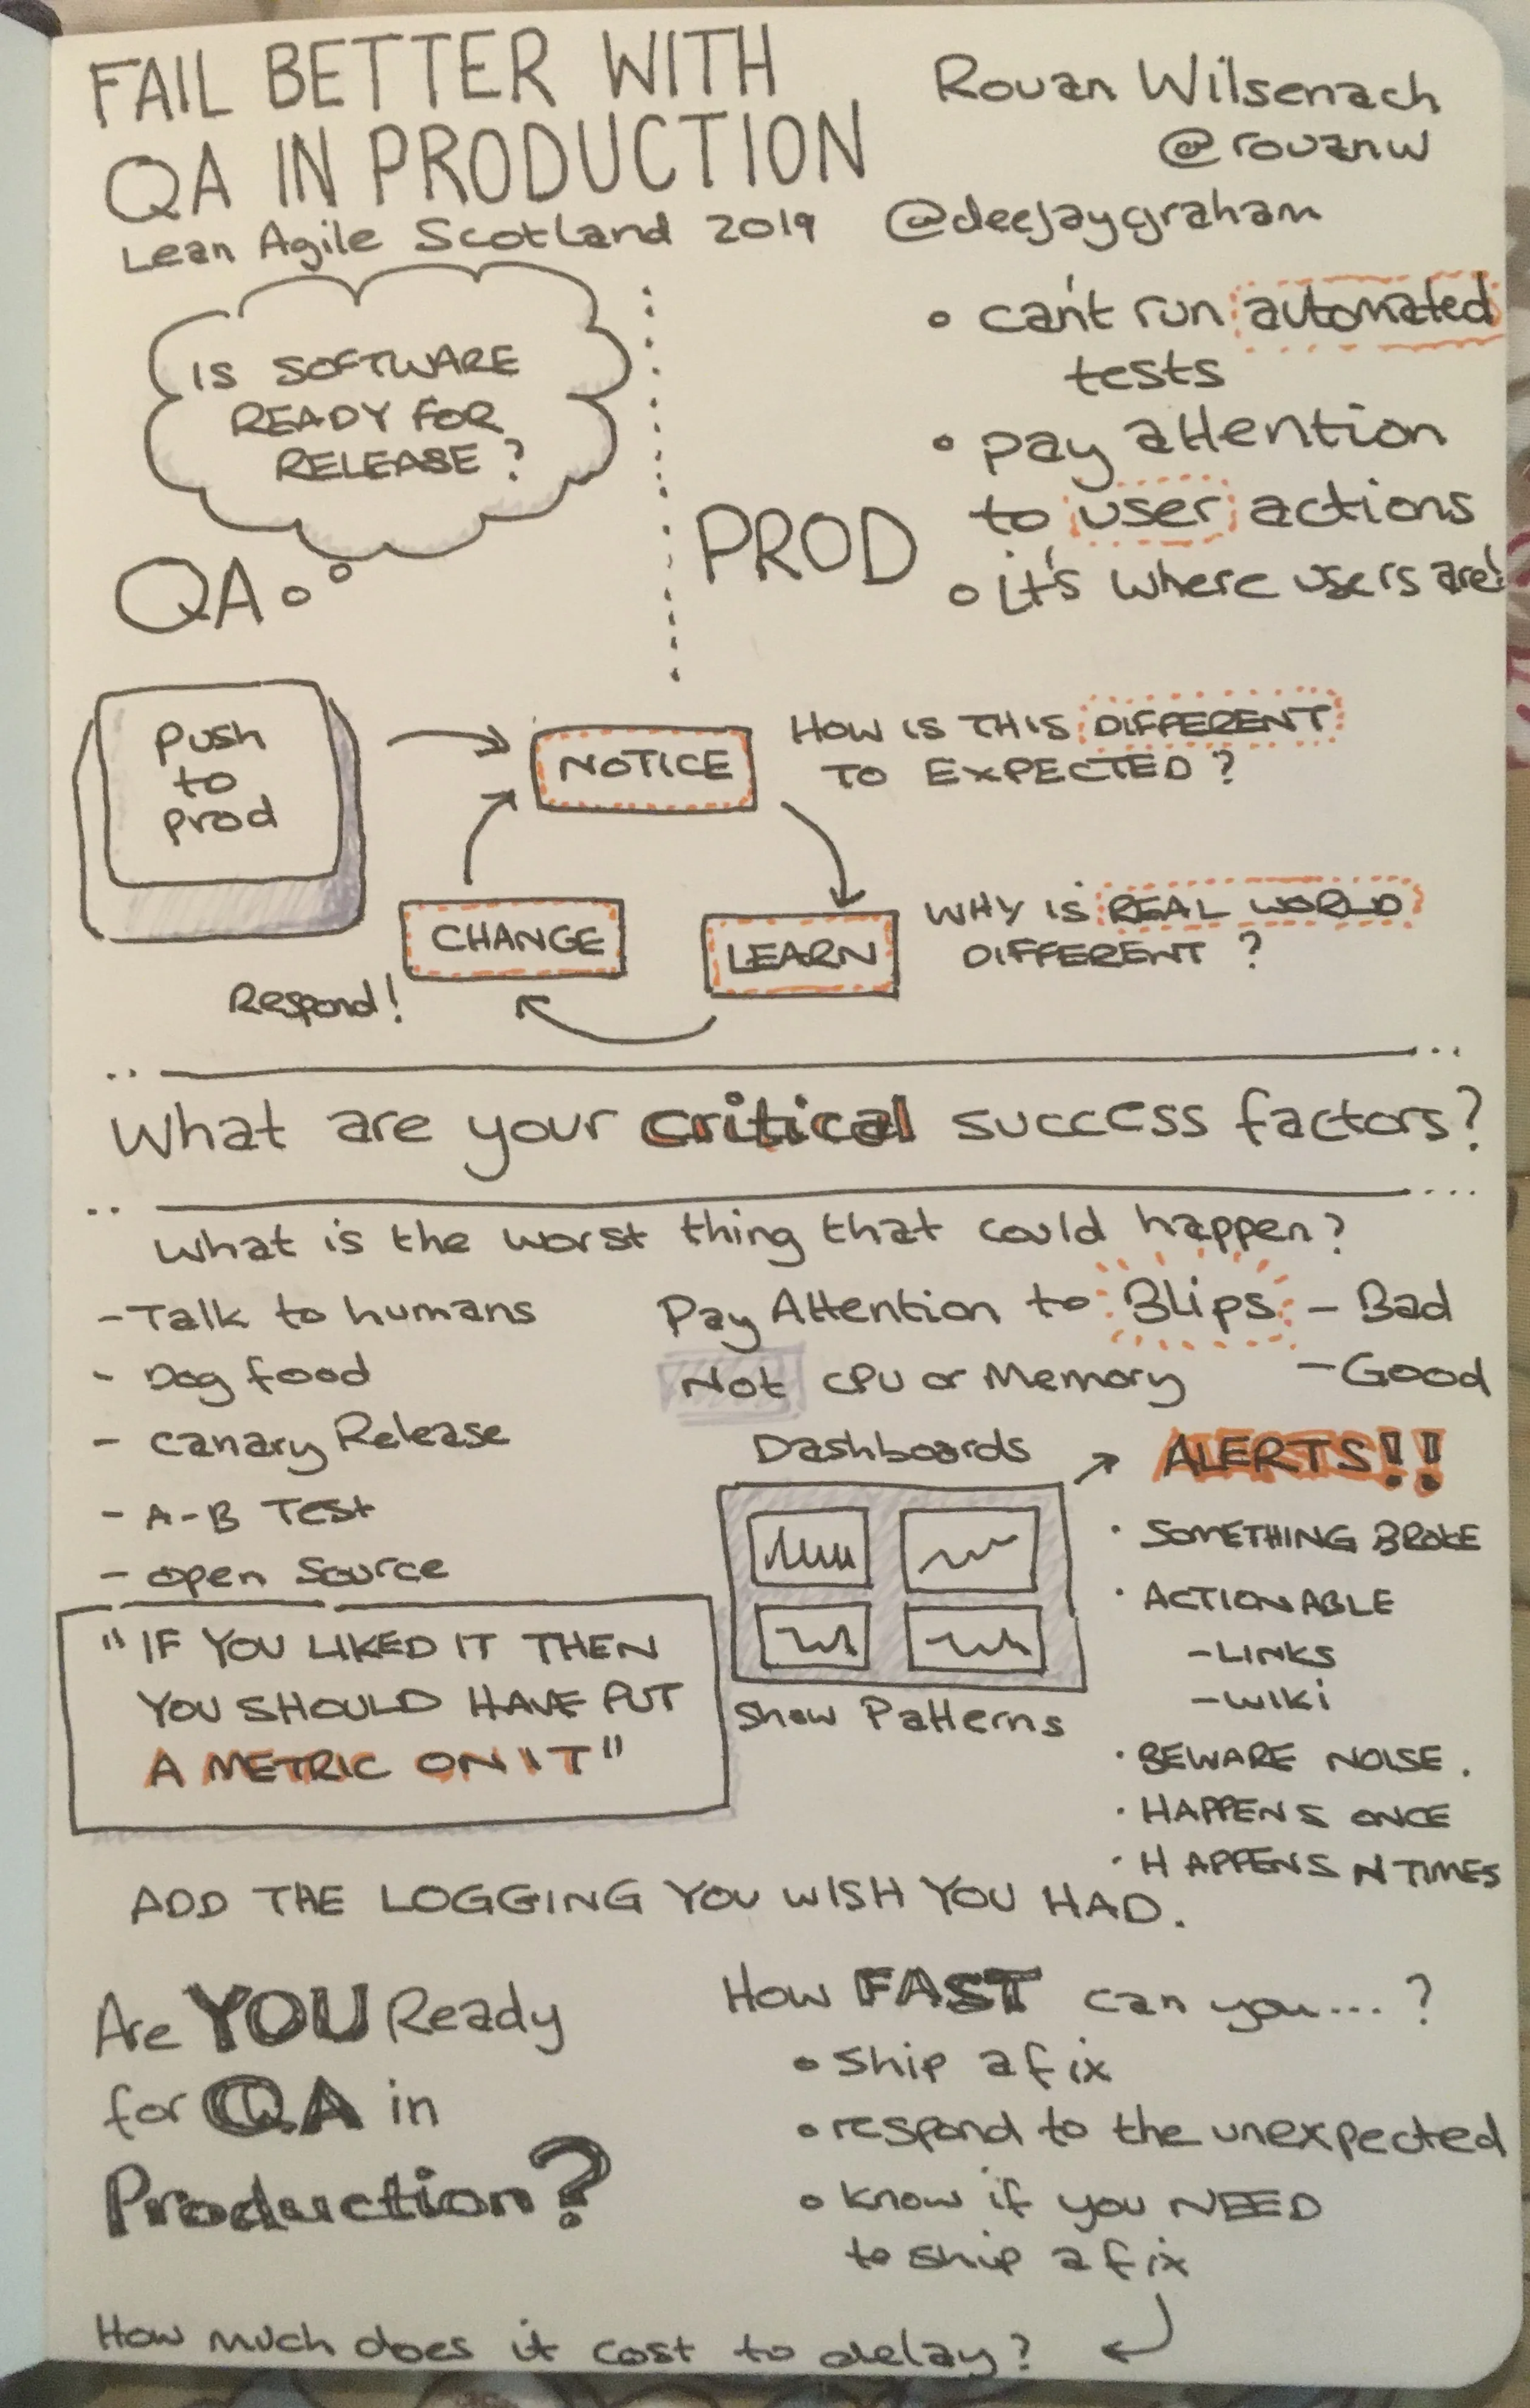 FAIL BETTER WITH
QA IN PRODUCTION
Lean Agile Scotland 2019
Rouan Wilsenach
@rouanw
@deejaygraham
IS SOFTWARE
READY FOR
RELEASE?
QA
PROD
• can't run automated
tests
• pay attention
to user actions
• it's where users are!
Push
to
prod
NOTICE
HOW IS THIS DIFFERENT
TO EXPECTED?
LEARN
WHY IS REAL WORLD
DIFFERENT?
CHANGE
Respond!
What are your critical success factors?
What is the worst thing that could happen?
- Talk to humans
- Dog food
- Canary Release
- A-B Test
- open Source
Pay Attention to Blips - Bad
- Good
Not CPU or Memory
Dashboards
Show Patterns
ALERTS!!
• SOMETHING BROKE
• ACTIONABLE
- LINKS
- WIKI
• BEWARE NOISE.
• HAPPENS ONCE
• HAPPENS N TIMES
"IF YOU LIKED IT THEN
YOU SHOULD HAVE PUT
A METRIC ON IT"
ADD THE LOGGING YOU WISH YOU HAD.
Are YOU Ready
for QA in
Production?
How FAST can you...?
• Ship a fix
• respond to the unexpected
• know if you NEED
to ship a fix
How much does it cost to delay?